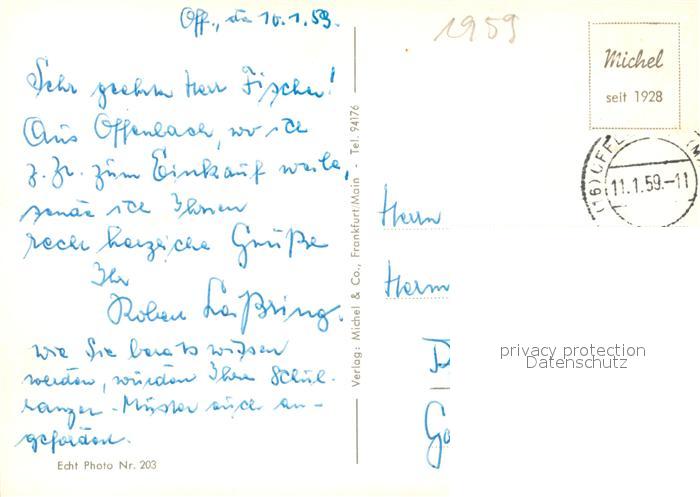 Off., den 10.1.59.
Sehr geehrter Herr Fischer!
Aus Offenbach, wo ich
z. Zt. zum Einkauf weile,
sende ich Ihnen
recht herzliche Grüße
Ihr
Robert
wie Sie bereits wissen
werden, wurden Ihre Schul-
ranzen-Muster auch an-
gefordert.
Echt Photo Nr. 203
Verlag: Michel & Co., Frankfurt/Main - Tel. 94176
1959
Michel
seit 1928
(16) OFFE
11.1.59.-11
Herrn
Herrn
privacy protection
Datenschutz